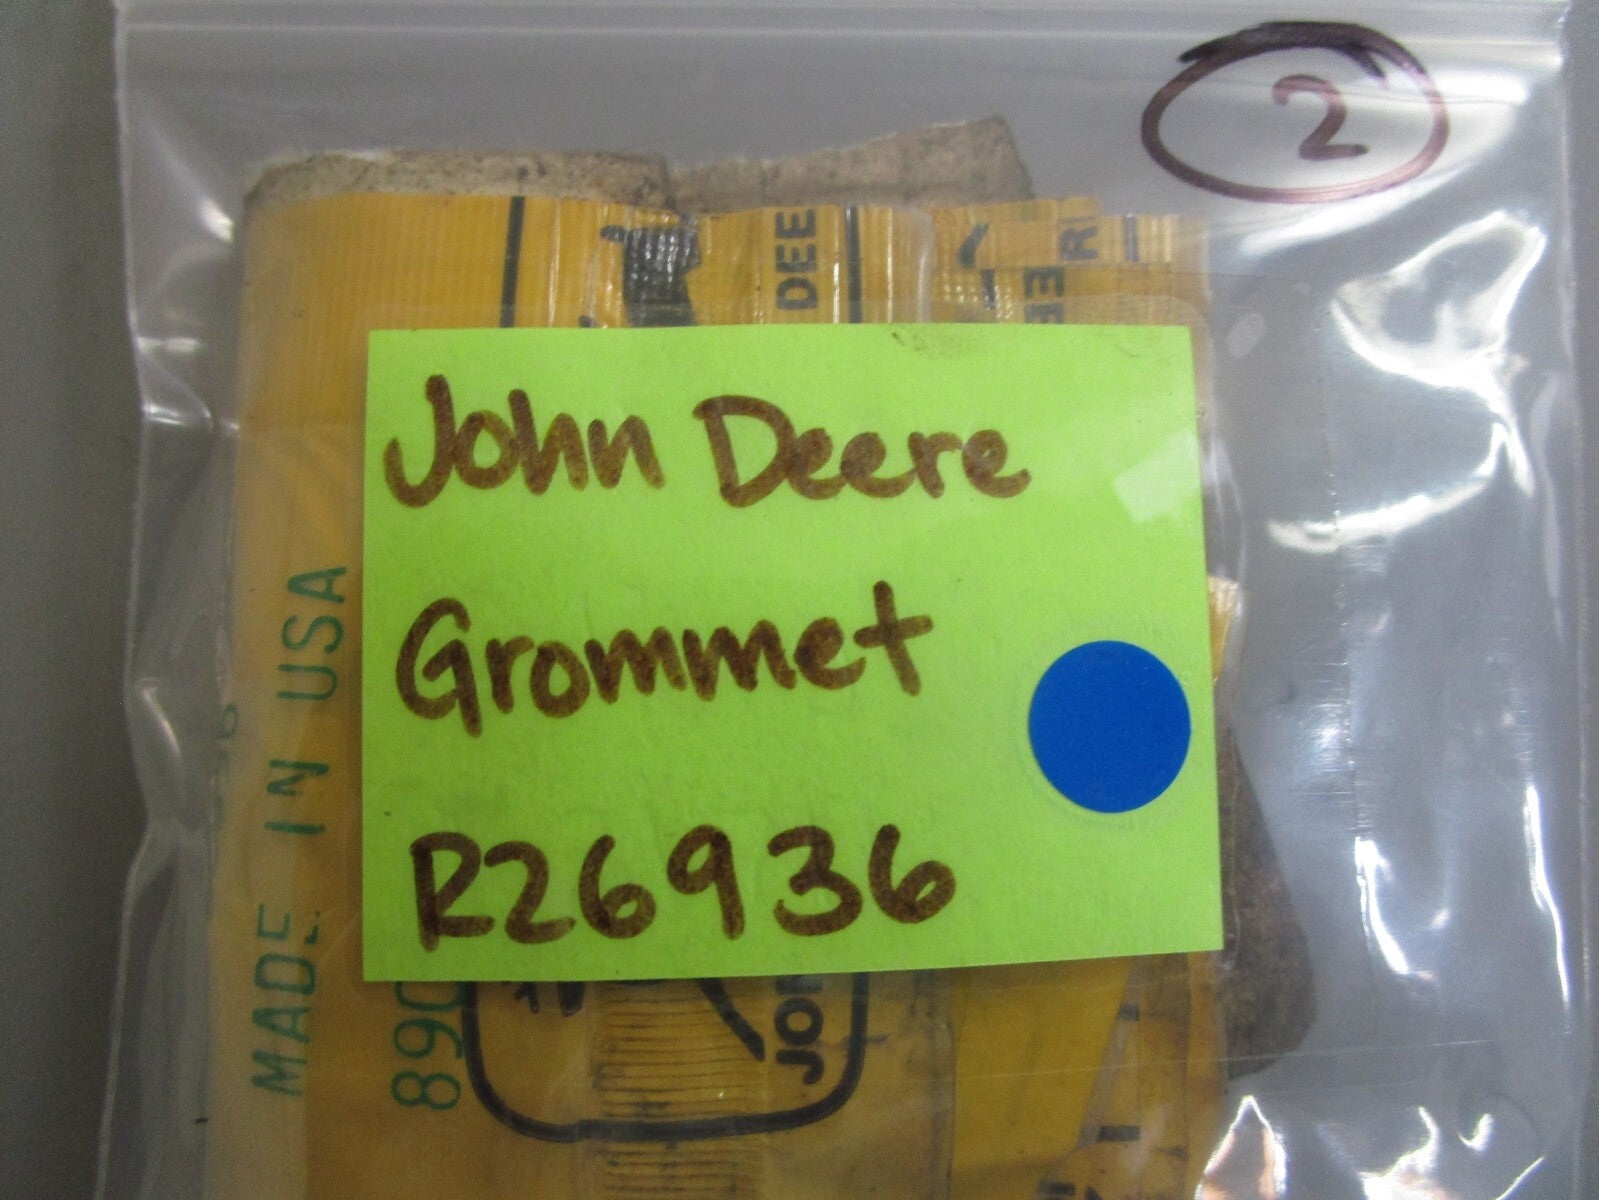 2
DEE
RI
EE
John Deere
Grommet
R26936
MADE IN USA
890
JO